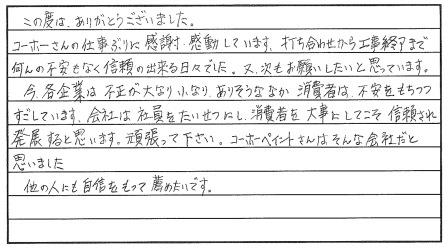 この度は、ありがとうございました。
コーホーさんの仕事ぶりに感謝・感動しています。打ち合わせから工事終了まで
何んの不安もなく信頼の出来る日々でした。又、次もお願いしたいと思っています。
今、各企業は不正が大なり小なり、ありそうななか消費者は、不安をもちつつ
すごしています。会社は社員をたいせつにし、消費者を大事にしてこそ信頼され
発展すると思います。頑張って下さい。コーホーペイントさんはそんな会社だと
思いました
他の人にも自信をもって薦めたいです。